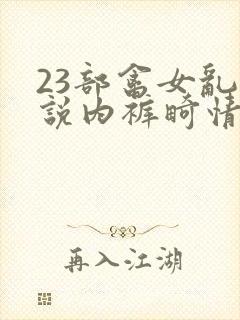 23部畲女亂
說內裤畸情
再入江湖